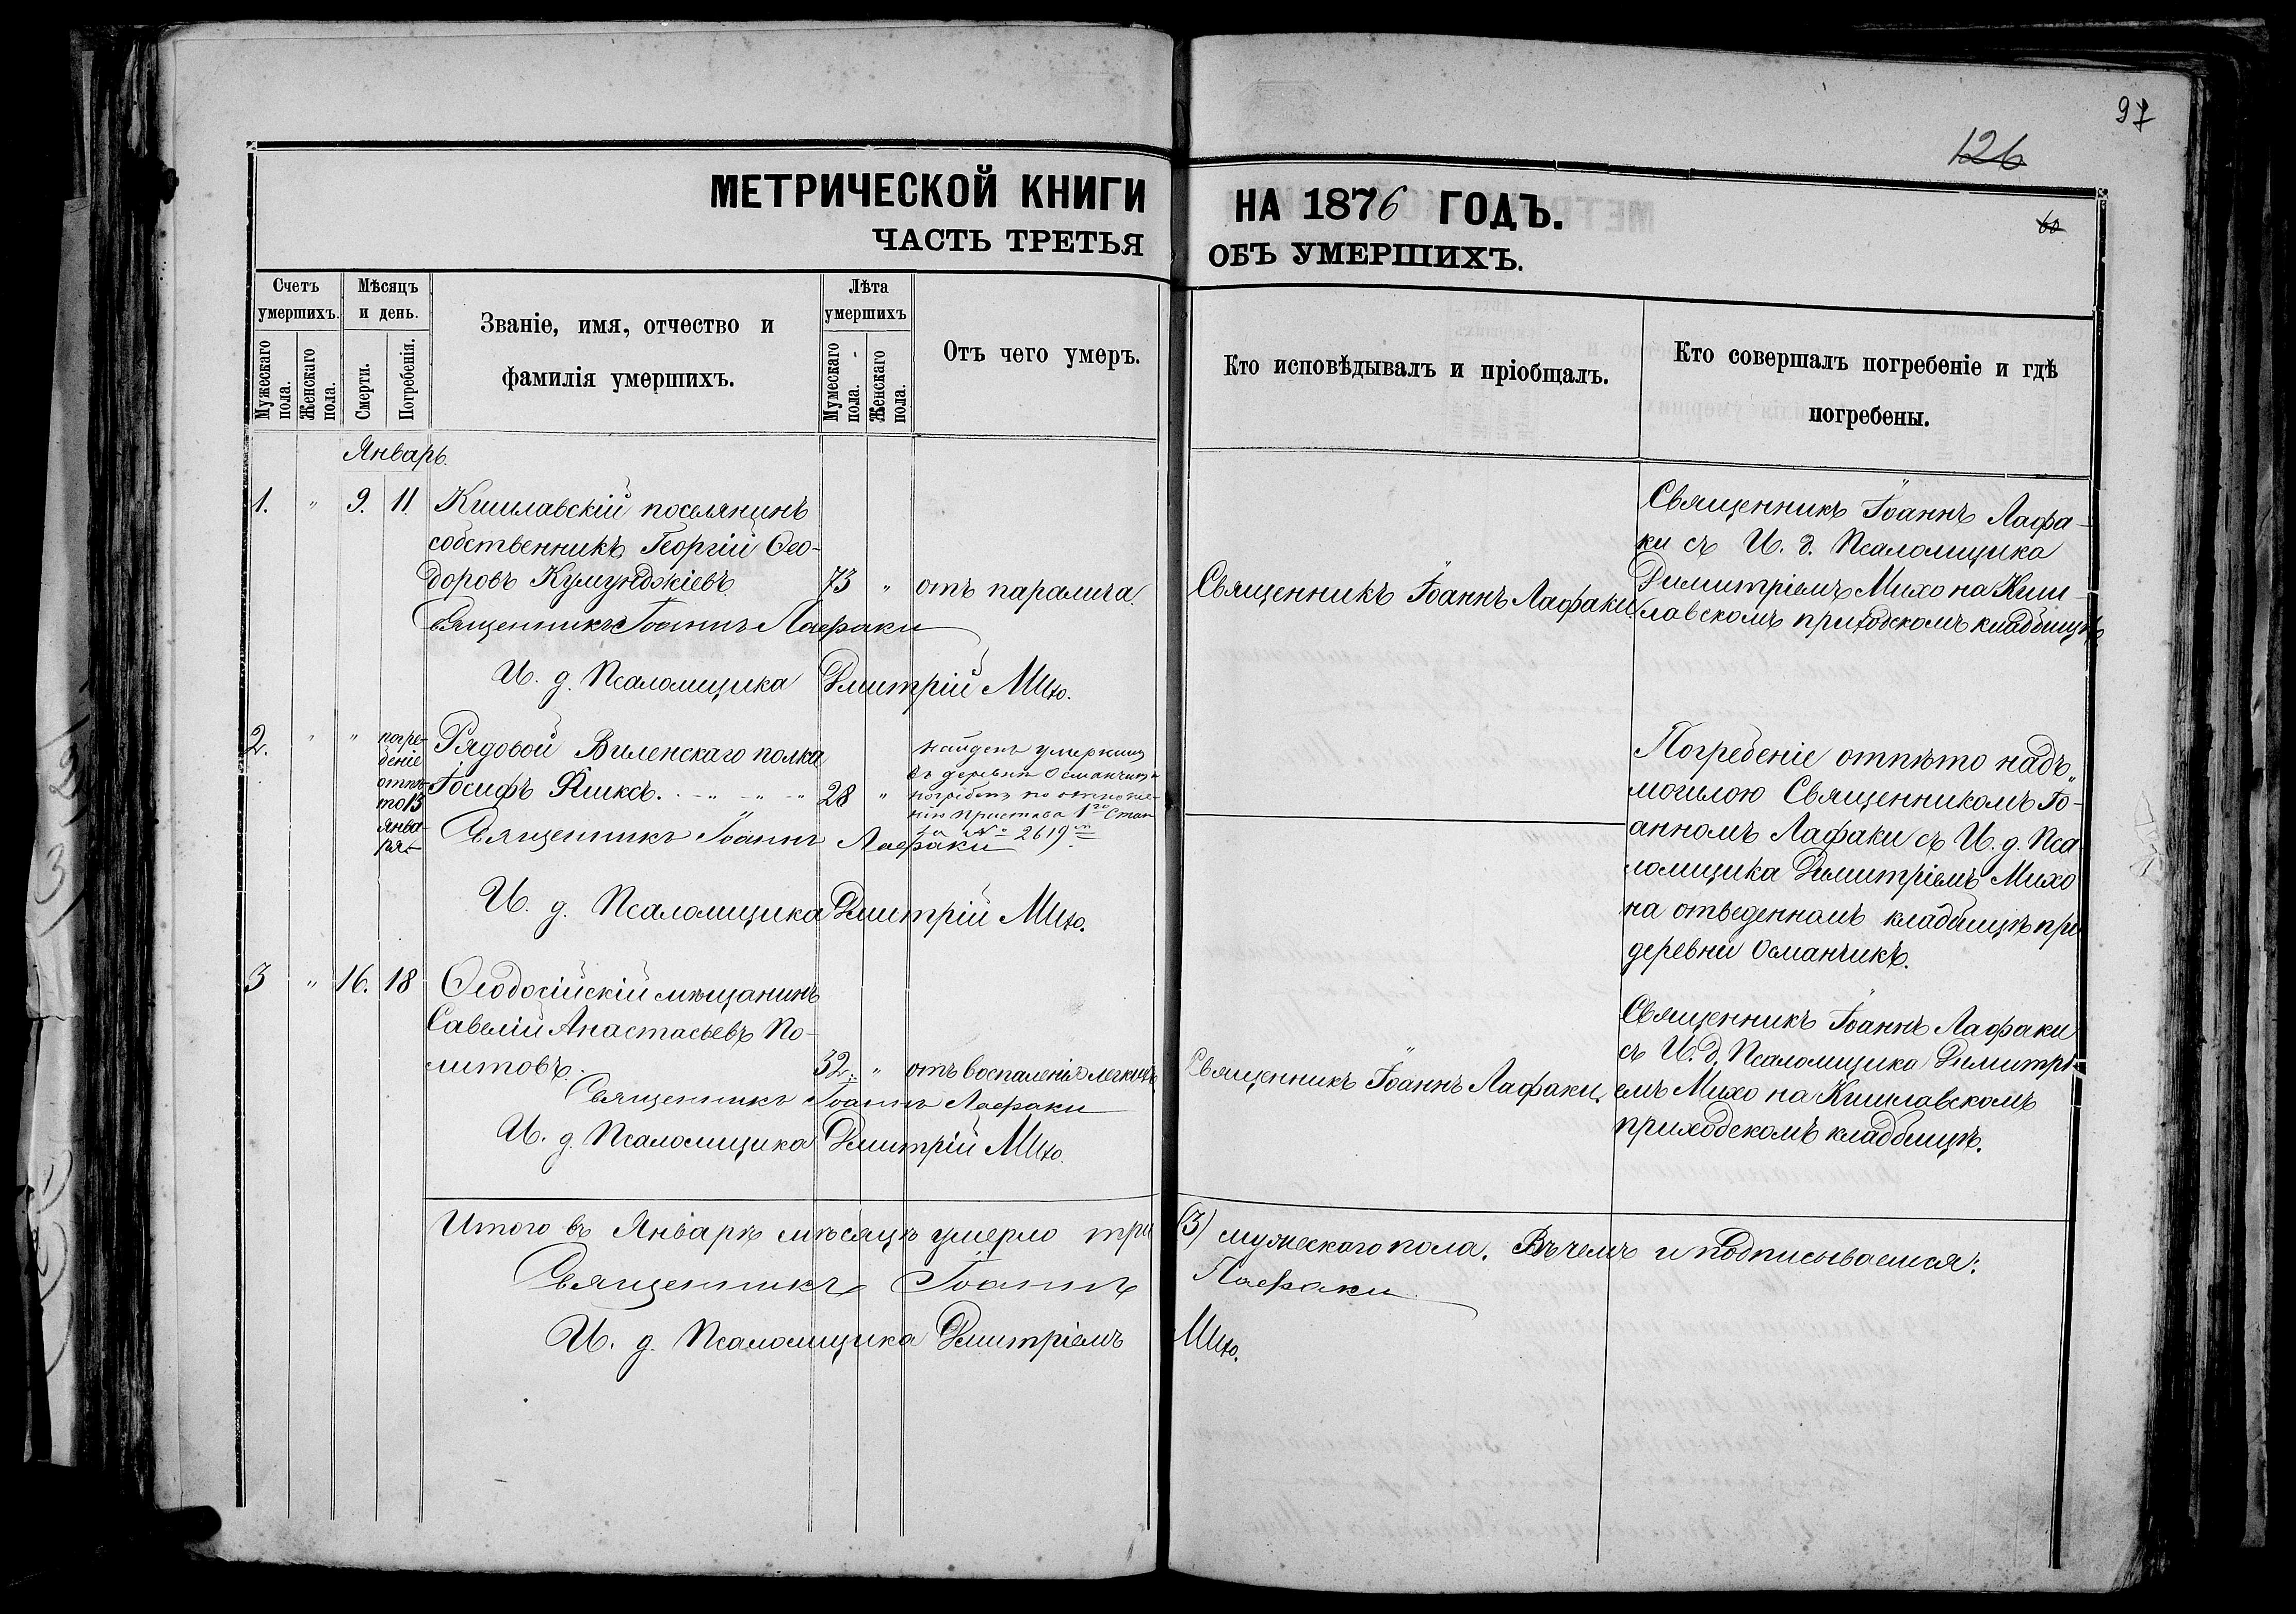 97
126
60
МЕТРИЧЕСКОЙ КНИГИ НА 1876 ГОДЪ.
ЧАСТЬ ТРЕТЬЯ ОБЪ УМЕРШИХЪ.
Счетъ умершихъ.
Мужескаго пола.
Женскаго пола.
Мѣсяцъ и день.
Смерти.
Погребенія.
Званіе, имя, отчество и
фамилія умершихъ.
Лѣта умершихъ
Мумескаго пола.
Женскаго пола.
Отъ чего умеръ.
Кто исповѣдывалъ и пріобщалъ.
Кто совершалъ погребеніе и гдѣ
погребены.
Январь.
1. " 9. 11.
Кишлавскій поселянинъ
собственникъ Георгій Ѳео-
доровъ Кумунджіевъ. 73 " отъ паралича.
Священникъ Іоаннъ Лафаки.
Священникъ Іоаннъ Лафа-
ки съ И. д. Псаломщика
Димитріемъ Михо на Киш-
лавскомъ приходскомъ кладбищѣ.
Священникъ Іоаннъ Лафаки
И. д. Псаломщика Дмитрій Михо.
2. " "
погре-
беніе
отпѣ-
то 13
янва-
ря.
Рядовой Виленскаго полка
Іосифъ 28 "
найденъ умершимъ
въ деревнѣ Османчикѣ
погребенъ по отноше-
нію пристава 1го Стан
за № 2619м
Священникъ Іоаннъ Лафаки
И. д. Псаломщика Дмитрій Михо.
Погребеніе отпѣто надъ
могилою Священникомъ Іо-
анномъ Лафаки съ И. д. Пса
ломщика Димитріемъ Михо
на отведенномъ кладбищѣ при
деревни Османчикъ.
3 " 16. 18
Ѳеодосійскій мѣщанинъ
Савелій Анастасьевъ По-
литовъ. 32. " отъ воспаленія легкихъ.
Священникъ Іоаннъ Лафаки.
Священникъ Іоаннъ Лафаки
съ И. д. Псаломщика Димитрі-
емъ Михо на Кишлавскомъ
приходскомъ кладбищѣ.
Священникъ Іоаннъ Лафаки
И. д. Псаломщика Дмитрій Михо.
Итого въ Январѣ мѣсяцѣ умерло три (3) мужескаго пола. Въ чемъ и подписываемся:
Священникъ Іоаннъ Лафаки
И. д. Псаломщика Дмитріемъ Михо.